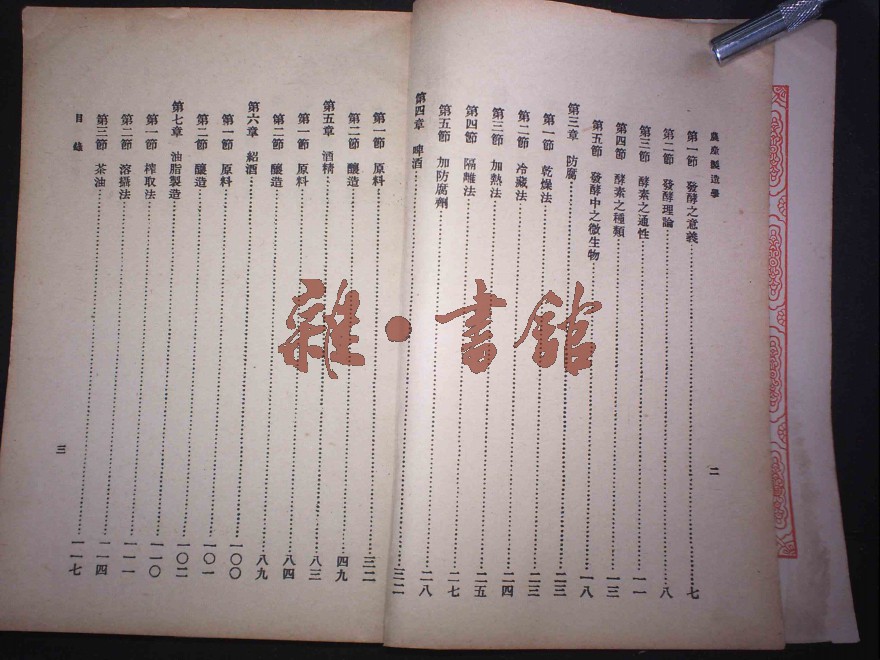 農產製造學
第一節 發酵之意義……七
第二節 發酵理論……八
第三節 酵素之通性……一一
第四節 酵素之種類……一三
第五節 發酵中之微生物……一八
第三章 防腐……二三
第一節 乾燥法……二三
第二節 冷藏法……二四
第三節 加熱法……二五
第四節 隔離法……二七
第五節 加防腐劑……二八
第四章 啤酒……三二
二
第一節 原料……三二
第二節 釀造……四九
第五章 酒精……八三
第一節 原料……八四
第二節 釀造……八九
第六章 紹酒……一〇〇
第一節 原料……一〇一
第二節 釀造……一〇二
第七章 油脂製造……一一〇
第一節 榨取法……一一一
第二節 溶攝法……一一四
第三節 茶油……一一七
目錄
三
雜·書館